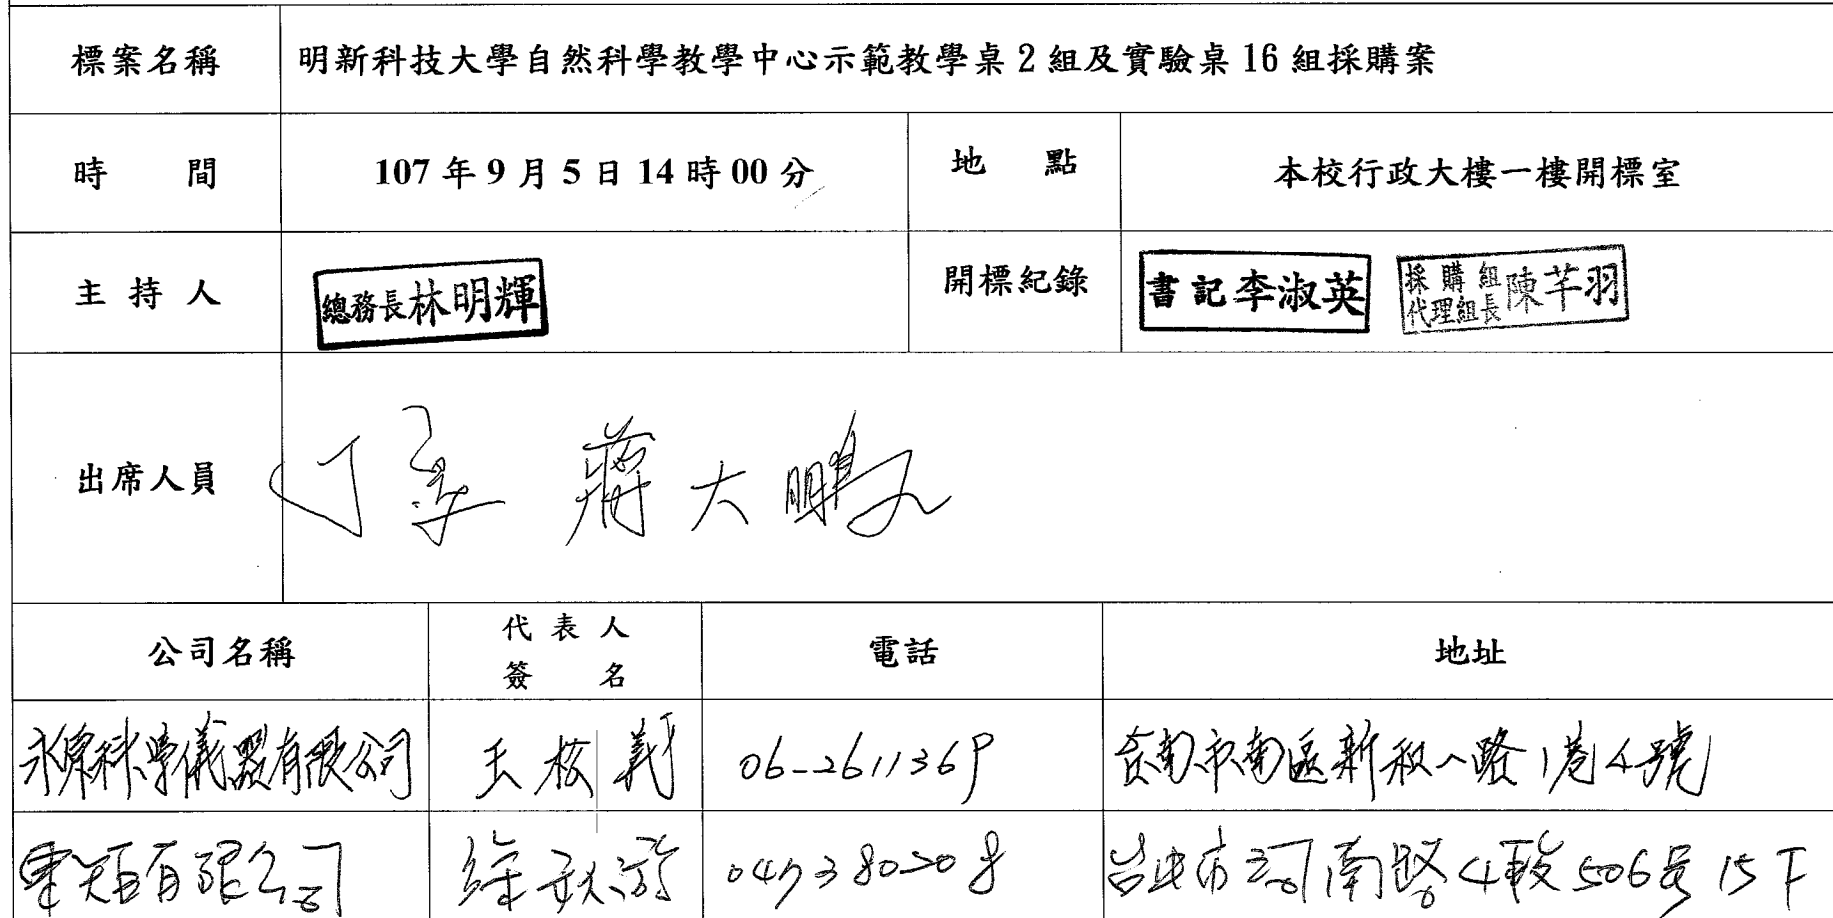 標案名稱 明新科技大學自然科學教學中心示範教學桌 2 組及實驗桌 16 組採購案
時 間 107 年 9 月 5 日 14 時 00 分 地 點 本校行政大樓一樓開標室
主 持 人 總務長林明輝 開標紀錄 書記李淑英 採購組代理組長陳芊羽
出席人員 蔣大鵬
公司名稱 代表人簽名 電話 地址
科學儀器有限公司 王 義 06-2611369 台南市南區新和一路1巷4號
有限公司 徐秋 台中市河南路4段506號15F